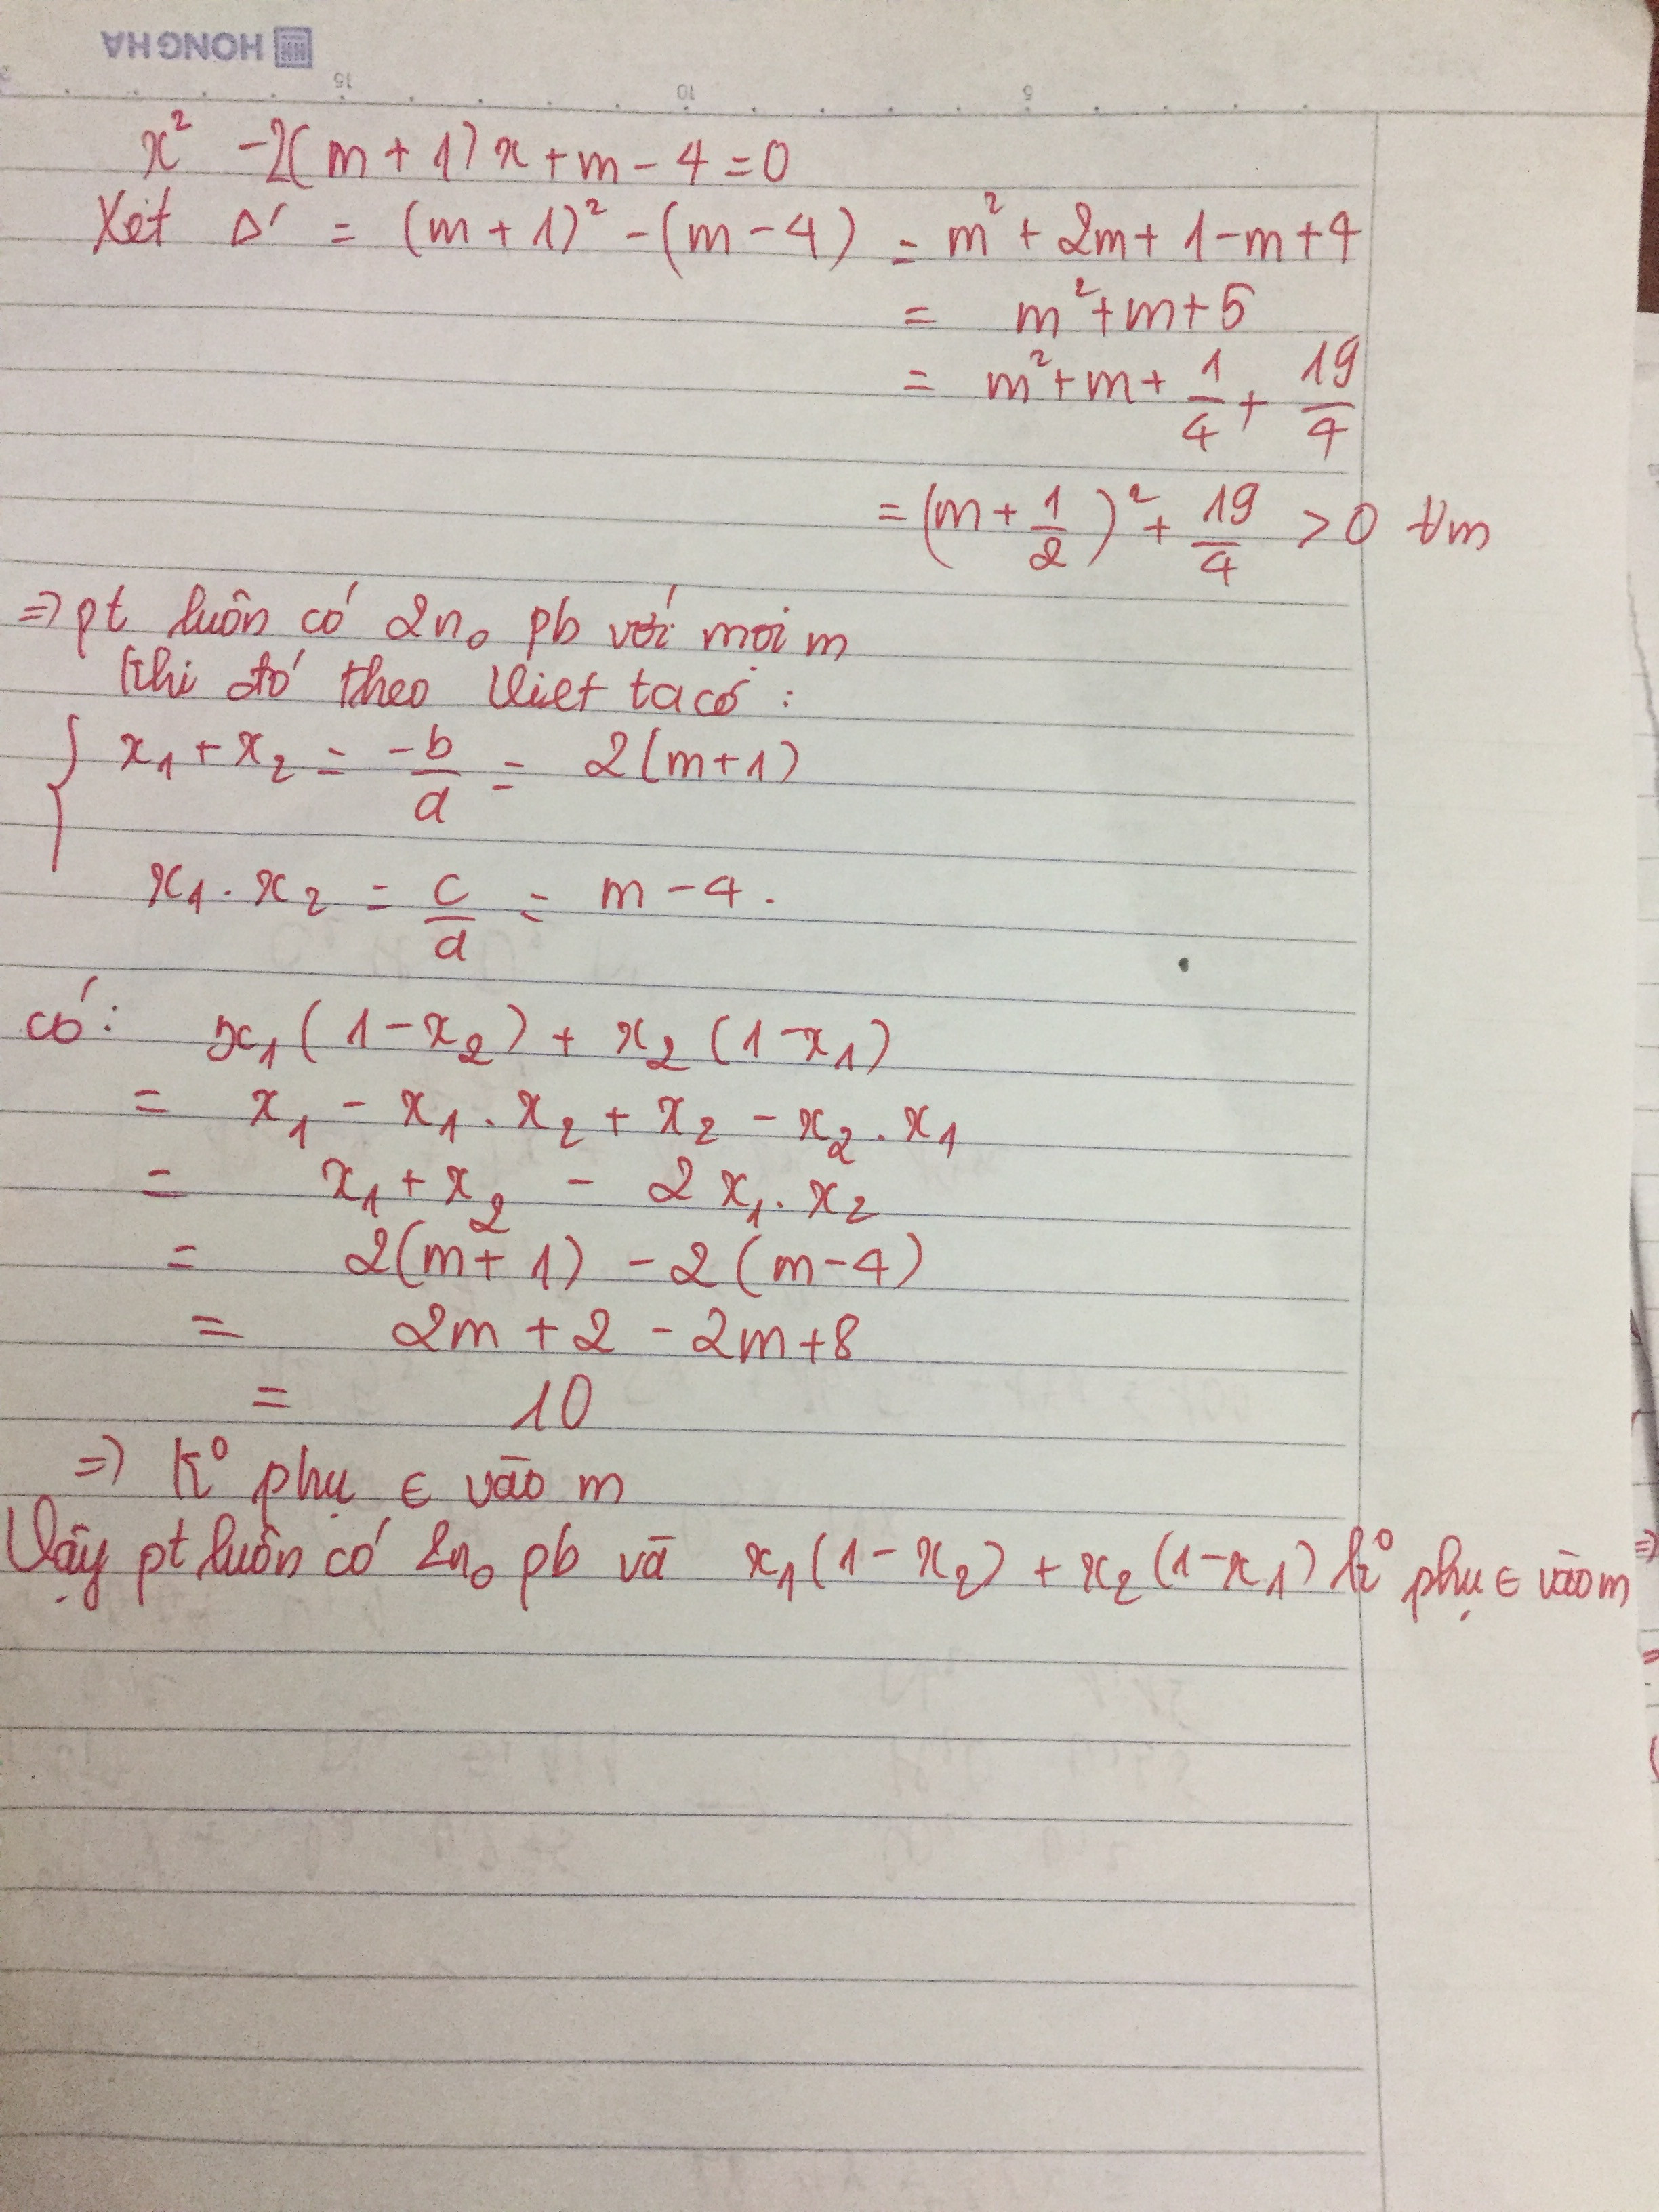 HONG HA
15 10 5
x² - 2(m + 1)x + m - 4 = 0
Xét Δ' = (m + 1)² - (m - 4) = m² + 2m + 1 - m + 4
= m² + m + 5
= m² + m + 1/4 + 19/4
= (m + 1/2)² + 19/4 > 0 ∀m
=> pt luôn có 2n₀ pb với mọi m
Khi đó theo Viet ta có :
{ x₁ + x₂ = -b/a = 2(m+1)
x₁ . x₂ = c/a = m - 4 .
có : x₁ ( 1 - x₂ ) + x₂ ( 1 - x₁ )
= x₁ - x₁ . x₂ + x₂ - x₂ . x₁
= x₁ + x₂ - 2 x₁ . x₂
= 2(m + 1) - 2 (m - 4)
= 2m + 2 - 2m + 8
= 10
=> k⁰ phụ ∈ vào m
Vậy pt luôn có 2n₀ pb và x₁ ( 1 - x₂ ) + x₂ ( 1 - x₁ ) k⁰ phụ ∈ vào m